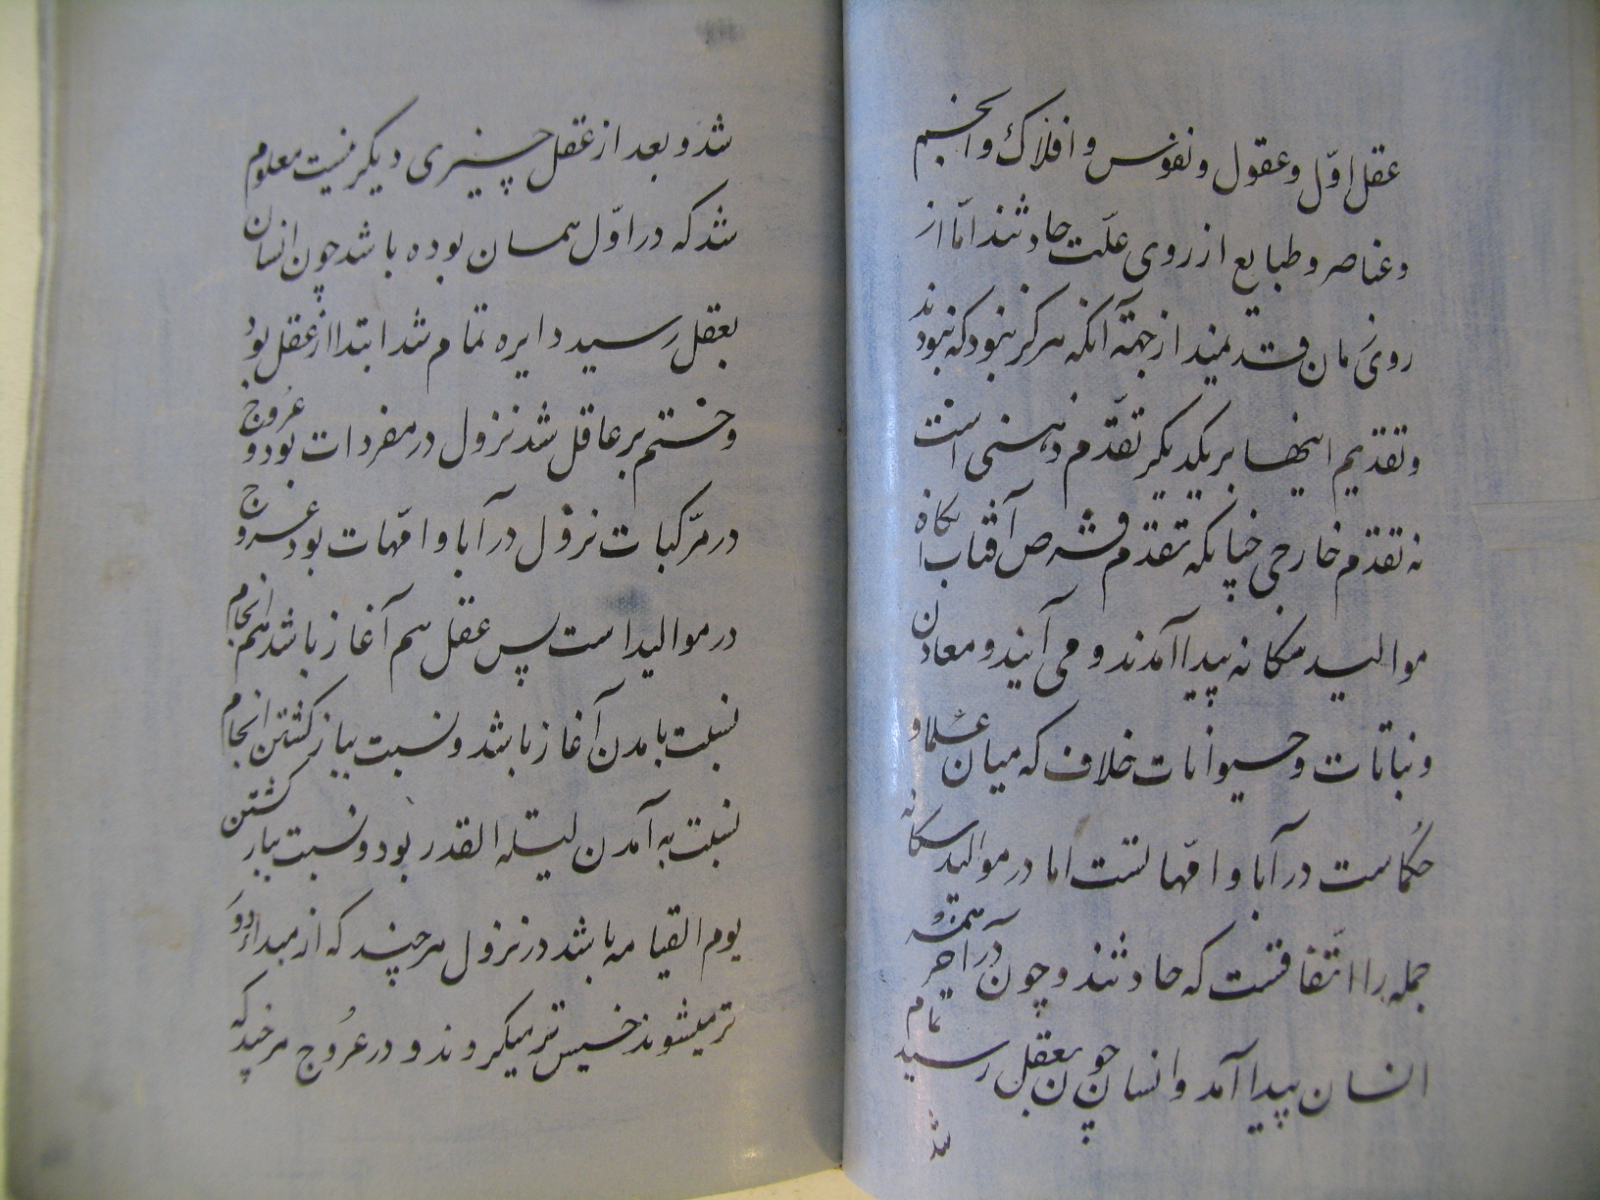 عقل اوّل و عقول و نفوس و افلاک و انجم
و عناصر و طبایع از روی علّت حادثند امّا از
روی زمان قدیمند از جهة آنکه هرگز نبود که نبودند
و تقدیم اینها بر یکدیگر تقدّم ذهنی است
نه تقدّم خارجی چنانکه تقدّم قرص آفتاب
موالید سکانه پیدا آمدند و می آیند و معادن
و نباتات و حیوانات خلاف که میان علما و
حکماست در آبا و امّهاتست اما در موالید سکانه
جمله را اتّفاقست که حادثند و چون در آخر همه
انسان پیدا آمد و انسان چون بعقل رسید تمام
شد
شد و بعد از عقل چیزی دیگر نیست معلوم
شد که در اوّل همان بوده باشد چون انسان
بعقل رسید دایره تمام شد ابتدا از عقل بود
و ختم بر عاقل شد نزول در مفردات بود و عروج
در مرّکبات نزول در آبا و امّهات بود عروج
در موالید است پس عقل هم آغاز باشد هم انجام
نسبت بامدن آغاز باشد و نسبت بباز کشتن انجام
نسبت به آمدن لیلة القدر بود و نسبت بباز کشتن
یوم القیامه باشد در نزول هر چند که از مبدا دور
تر میشوند خسیس تر میکروند و در عُروج هر چند که